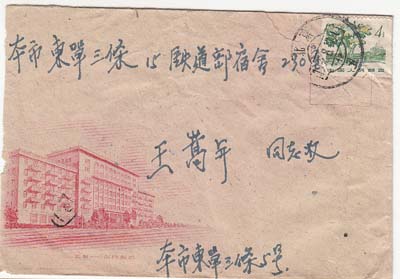 本市東單三條15鉄道部宿舍230
4
王萬年 同志收
本市東單三條5号